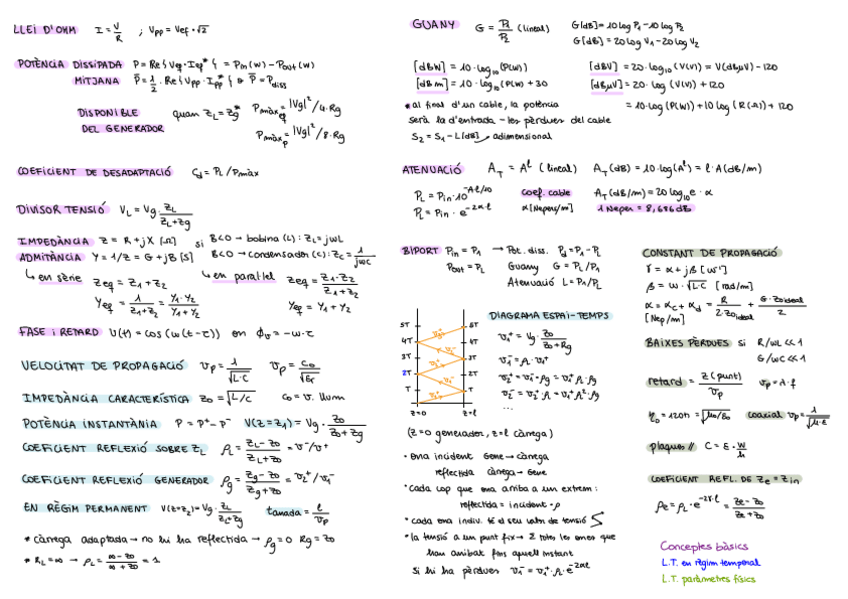 LLEI D'OHM I = V/R ; Vpp = Vef·√2
POTÈNCIA DISSIPADA P = Re{Vef·Ief*} = Pin(w) − Pout(w)
MITJANA P̄ = 1/2 · Re{Vpp·Ipp*}
DISPONIBLE DEL GENERADOR quan ZL = Zg* Pmàx ef = |Vg|²/4·Rg
Pmàx p = |Vg|²/8·Rg
COEFICIENT DE DESADAPTACIÓ Cd = PL/Pmàx
DIVISOR TENSIÓ VL = Vg · ZL/(ZL+Zg)
IMPEDÀNCIA Z = R + jX [Ω] si B<0 → bobina (L): ZL = jωL
ADMITÀNCIA Y = 1/Z = G + jB [S] B<0 → condensador (C): ZC = 1/jωC
↳ en sèrie Zeq = Z1 + Z2
Yeq = 1/(Z1+Z2) = Y1·Y2/(Y1+Y2)
↳ en paral·lel Zeq = Z1·Z2/(Z1+Z2)
Yeq = Y1 + Y2
FASE i RETARD V(t) = cos(ω(t−τ)) on ϕv = −ω·τ
VELOCITAT DE PROPAGACIÓ vp = 1/√L·C vp = c0/√εr
IMPEDÀNCIA CARACTERÍSTICA Z0 = √L/C c0 = v. llum
POTÈNCIA INSTANTÀNIA P = P⁺ − P⁻ V(Z=Z1) = Vg · Z0/(Z0+Zg)
COEFICIENT REFLEXIÓ SOBRE ZL ρL = (ZL−Z0)/(ZL+Z0) = v⁻/v⁺
COEFICIENT REFLEXIÓ GENERADOR ρg = (Zg−Z0)/(Zg+Z0) = v2⁺/v1⁻
EN RÈGIM PERMANENT V(Z=Z2) = Vg · ZL/(ZL+Zg) tanada = l/vp
* càrrega adaptada → no hi ha reflectida → ρg = 0 Rg = Z0
* RL = ∞ → ρL = (∞−Z0)/(∞+Z0) = 1
GUANY G = P1/P2 (lineal) G[dB] = 10 log P1 − 10 log P2
G[dB] = 20 log V1 − 20 log V2
[dBW] = 10·log10(P(W)) [dBV] = 20·log10(V(V)) = V(dBμV) − 120
[dBm] = 10·log10(P(W)) + 30 [dBμV] = 20·log(V(V)) + 120
= 10·log(P(W)) + 10 log(R(Ω)) + 120
* al final d'un cable, la potència
serà la d'entrada − les pèrdues del cable
S2 = S1 − L[dB] adimensional
ATENUACIÓ AT = Aˡ (lineal) AT(dB) = 10·log(Aˡ) = l·A(dB/m)
PL = Pin·10^(−A·l/10) coef. cable AT(dB/m) = 20 log10 e · α
PL = Pin · e^(−2α·l) α[Nepers/m] 1 Neper = 8,686 dB
BIPORT Pin = P1 → Pot. diss. Pd = P1 − PL
Pout = PL Guany G = PL/P1
Atenuació L = P1/PL
DIAGRAMA ESPAI-TEMPS
5T
4T
3T
2T
T
z=0 z=l
v1⁺ = Vg · Z0/(Z0+Rg)
v1⁻ = ρL·v1⁺
v2⁺ = v1⁻·ρg = v1⁺·ρL·ρg
v2⁻ = v2⁺·ρL = v1⁺·ρL²·ρg
...
(z=0 generador, z=l càrrega)
• ona incident Gene → càrrega
reflectida càrrega → Gene
* cada cop que ona arriba a un extrem:
reflectida = incident·ρ
* cada ona indiv. té el seu valor de tensió
* la tensió a un punt fix → Σ totes les ones que
han arribat fins aquell instant
Si hi ha pèrdues v1⁻ = v1⁺·ρL·e^(−2αl)
CONSTANT DE PROPAGACIÓ
γ = α + jβ [m⁻¹]
β = ω·√L·C [rad/m]
α = αc + αd = R/(2·Z0ideal) + G·Z0ideal/2
[Nep/m]
BAIXES PÈRDUES si R/ωL << 1
G/ωC << 1
retard = z(punt)/vp vp = λ·f
η0 = 120π = √μ0/ε0 coaxial vp = 1/√μ·ε
plaques // C = ε · W/h
COEFICIENT REFL. DE Ze = Zin
ρe = ρL·e^(−2γ·l) = (Ze−Z0)/(Ze+Z0)
Conceptes bàsics
L.T. en règim temporal
L.T. paràmetres físics